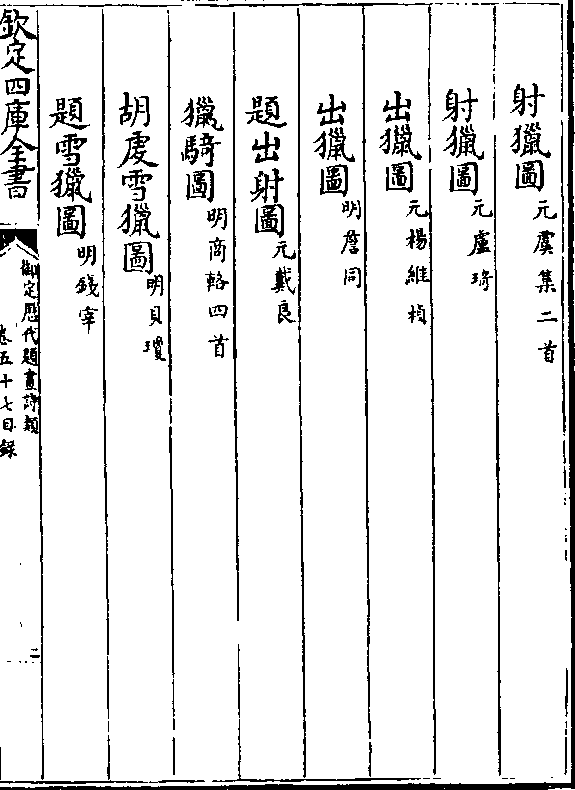 射獵圖元虞集二首
射獵圖元盧琦
出獵圖元楊維楨
出獵圖明詹同
題出射圖元戴良
獵騎圖明商輅四首
胡虔雪獵圖明貝瓊
題雪獵圖明錢宰
欽定四庫全書
御定歷代題畫詩類
卷五十七目錄
二